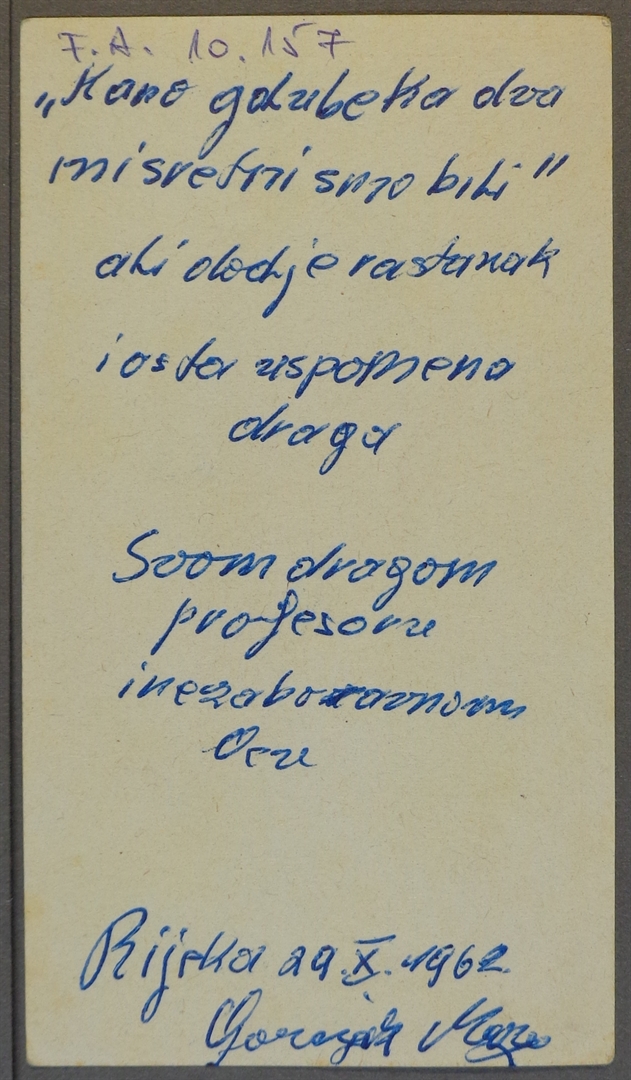 F.A. 10.157
„Kano golubeka dva
mi sretni smo bili"
ali dodje rastanak
i osta uspomena
draga
Svom dragom
profesoru
i nezaboravnom
Ocu
Rijeka 29.X.1962.